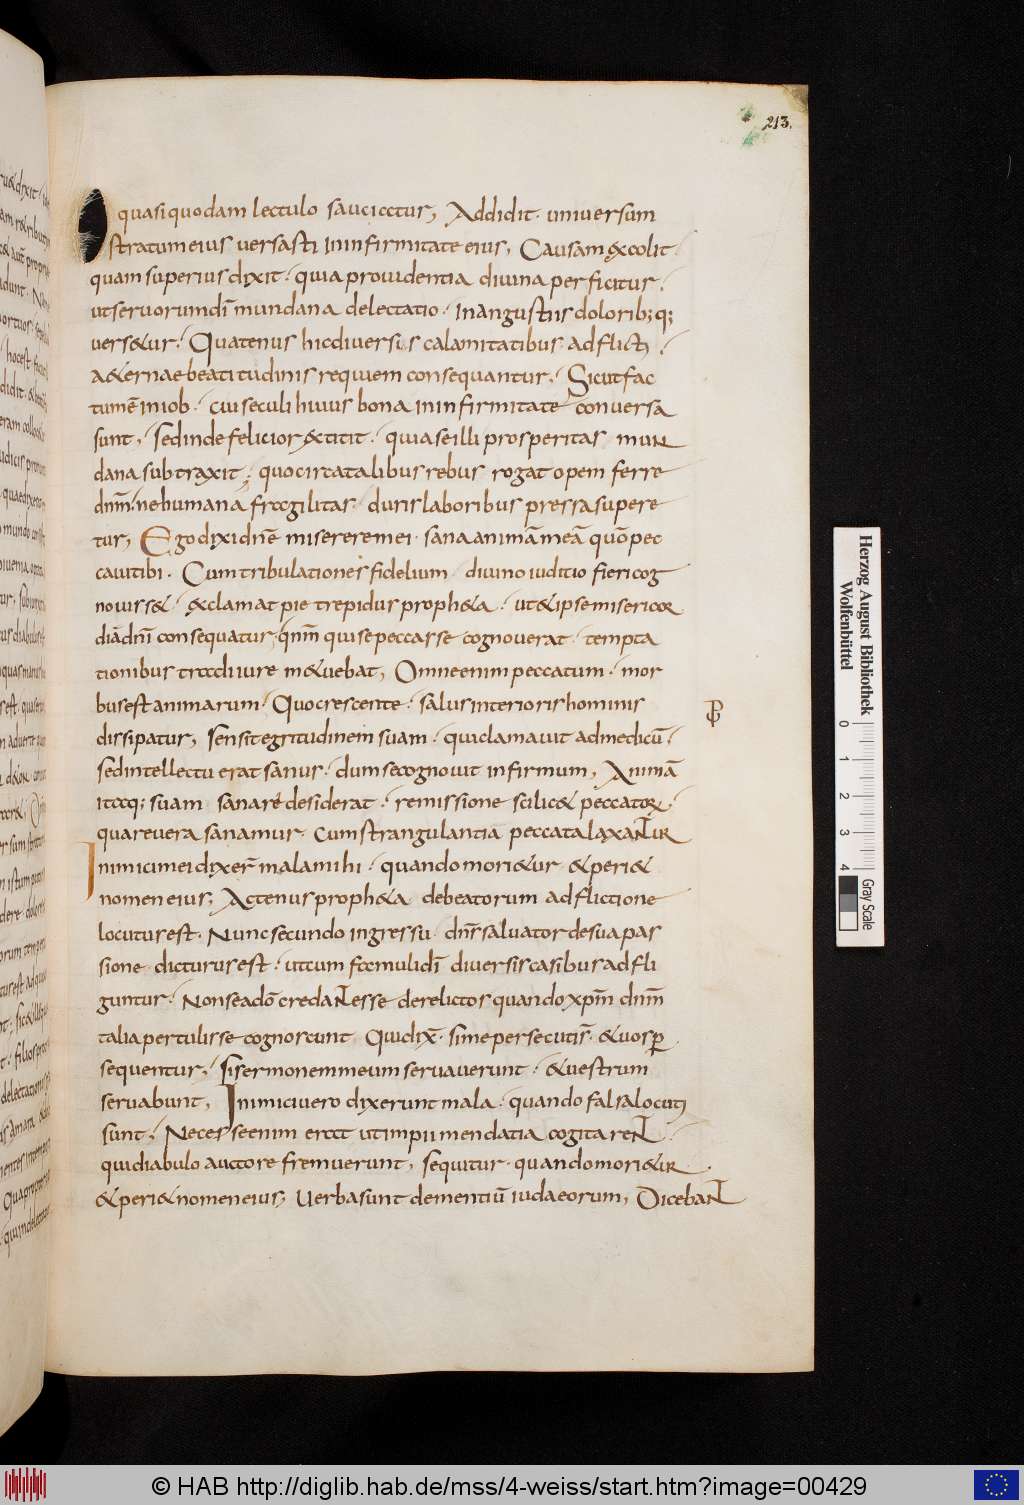 213.
quasi quodam lectulo sauciatur, Addidit· uniuersum
stratum eius uersasti in infirmitate eius, Causam excolit·
quam superius dixit· quia prouidentia diuina perficitur·
ut seruorum dī mundana delectatio· in angustiis dolorib; q;
uers&ur· Quatenus hic diuersis calamitatibus adflicti·
a&ernae beatitudinis requiem consequantur· Sicut fac
tum ē in iob· cui seculi huius bona in infirmitate conuersa
sunt, sed inde felicior extitit· quia se illi prosperitas mun
dana subtraxit; quo circa talibus rebus rogat opem ferre
dnm̄· ne humana fragilitas· duris laboribus pressa supere
tur, Ego dixi dnē miserere mei· sana animā meā quō pec
caui tibi· Cum tribulationes fidelium diuino iuditio fieri cog
nouiss&· exclamat pie trepidus proph&a· ut & ipse misericor
diā dnī consequatur, qnm̄ qui se peccasse cognouerat· tempta
tionibus tradi iure m&uebat, Omne enim peccatum· mor
bus est animarum· Quo crescente· salus interioris hominis
dissipatur, sensit egritudinem suam· qui clamauit ad medicū·
sed intellectu erat sanus· dum se cognouit infirmum, Animā
itaq; suam sanare desiderat· remissione scilic& peccator·
qua reuera sanamur· cum strangulantia peccata laxantur
Inimici mei dixer̄ mala mihi· quando mori&ur & peri&
nomen eius; Actenus proph&a de beatorum adflictione
locutur est· Nunc secundo ingressu· dnr̄ saluator de sua pas
sione dicturus est· ut cum famuli dī diuersis casibus adfli
guntur· Non se adō credant esse derelictos quando xpm̄ dnm̄
talia pertulisse cognoscunt Qui dix̄· si me persecuti s̄· & uos ꝑ
sequentur, si sermonem meum seruauerunt· & uestrum
seruabunt, Inimici uero dixerunt mala· quando falsa locuti
sunt, Necesse enim erat ut impii mendatia cogitarent·
qui diabulo auctore fremuerunt, sequitur· quando mori&ur·
& peri& nomen eius, Uerba sunt dementiū iudaeorum, Diceban&
Herzog August Bibliothek
Wolfenbüttel
0 1 2 3 4
Gray Scale
© HAB http://diglib.hab.de/mss/4-weiss/start.htm?image=00429